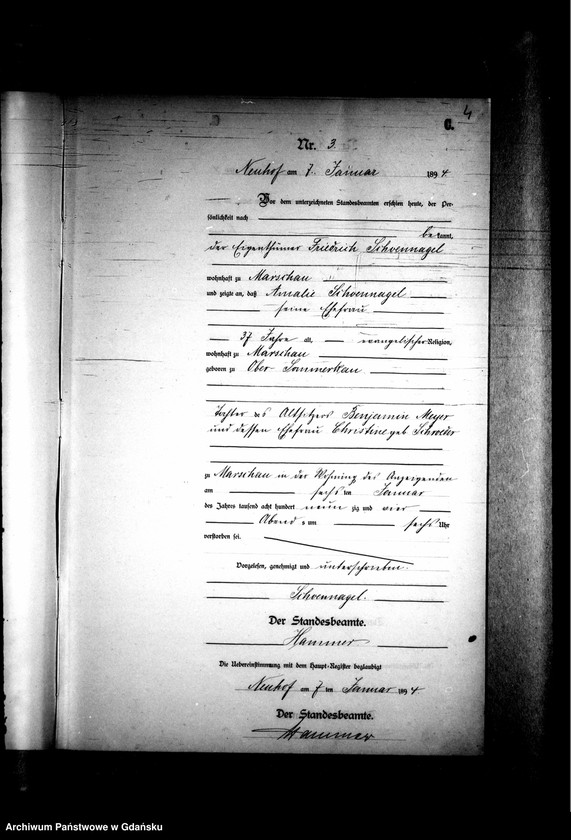 4
C.
Nr. 3.
Neuhof am 7. Januar 1894
Vor dem unterzeichneten Standesbeamten erschien heute, der Per-
sönlichkeit nach
be kannt,
der Eigenthümer Friedrich Schoennagel
wohnhaft zu Marschau
und zeigte an, daß Amalie Schoennagel
seine Ehefrau
37 Jahre alt, evangelischer Religion,
wohnhaft zu Marschau
geboren zu Ober-Sommerkau
Tochter des Altsitzers Benjamin Meyer
und dessen Ehefrau Christine geb Schroeder
zu Marschau in der Wohnung des Anzeigenden
am sechs ten Januar
des Jahres tausend acht hundert neun zig und vier
Abend s um sechs Uhr
verstorben sei.
Vorgelesen, genehmigt und unterschrieben.
Schoennagel.
Der Standesbeamte.
Hammer
Die Uebereinstimmung mit dem Haupt-Register beglaubigt
Neuhof am 7 ten Januar 1894
Der Standesbeamte.
Hammer
Archiwum Państwowe w Gdańsku